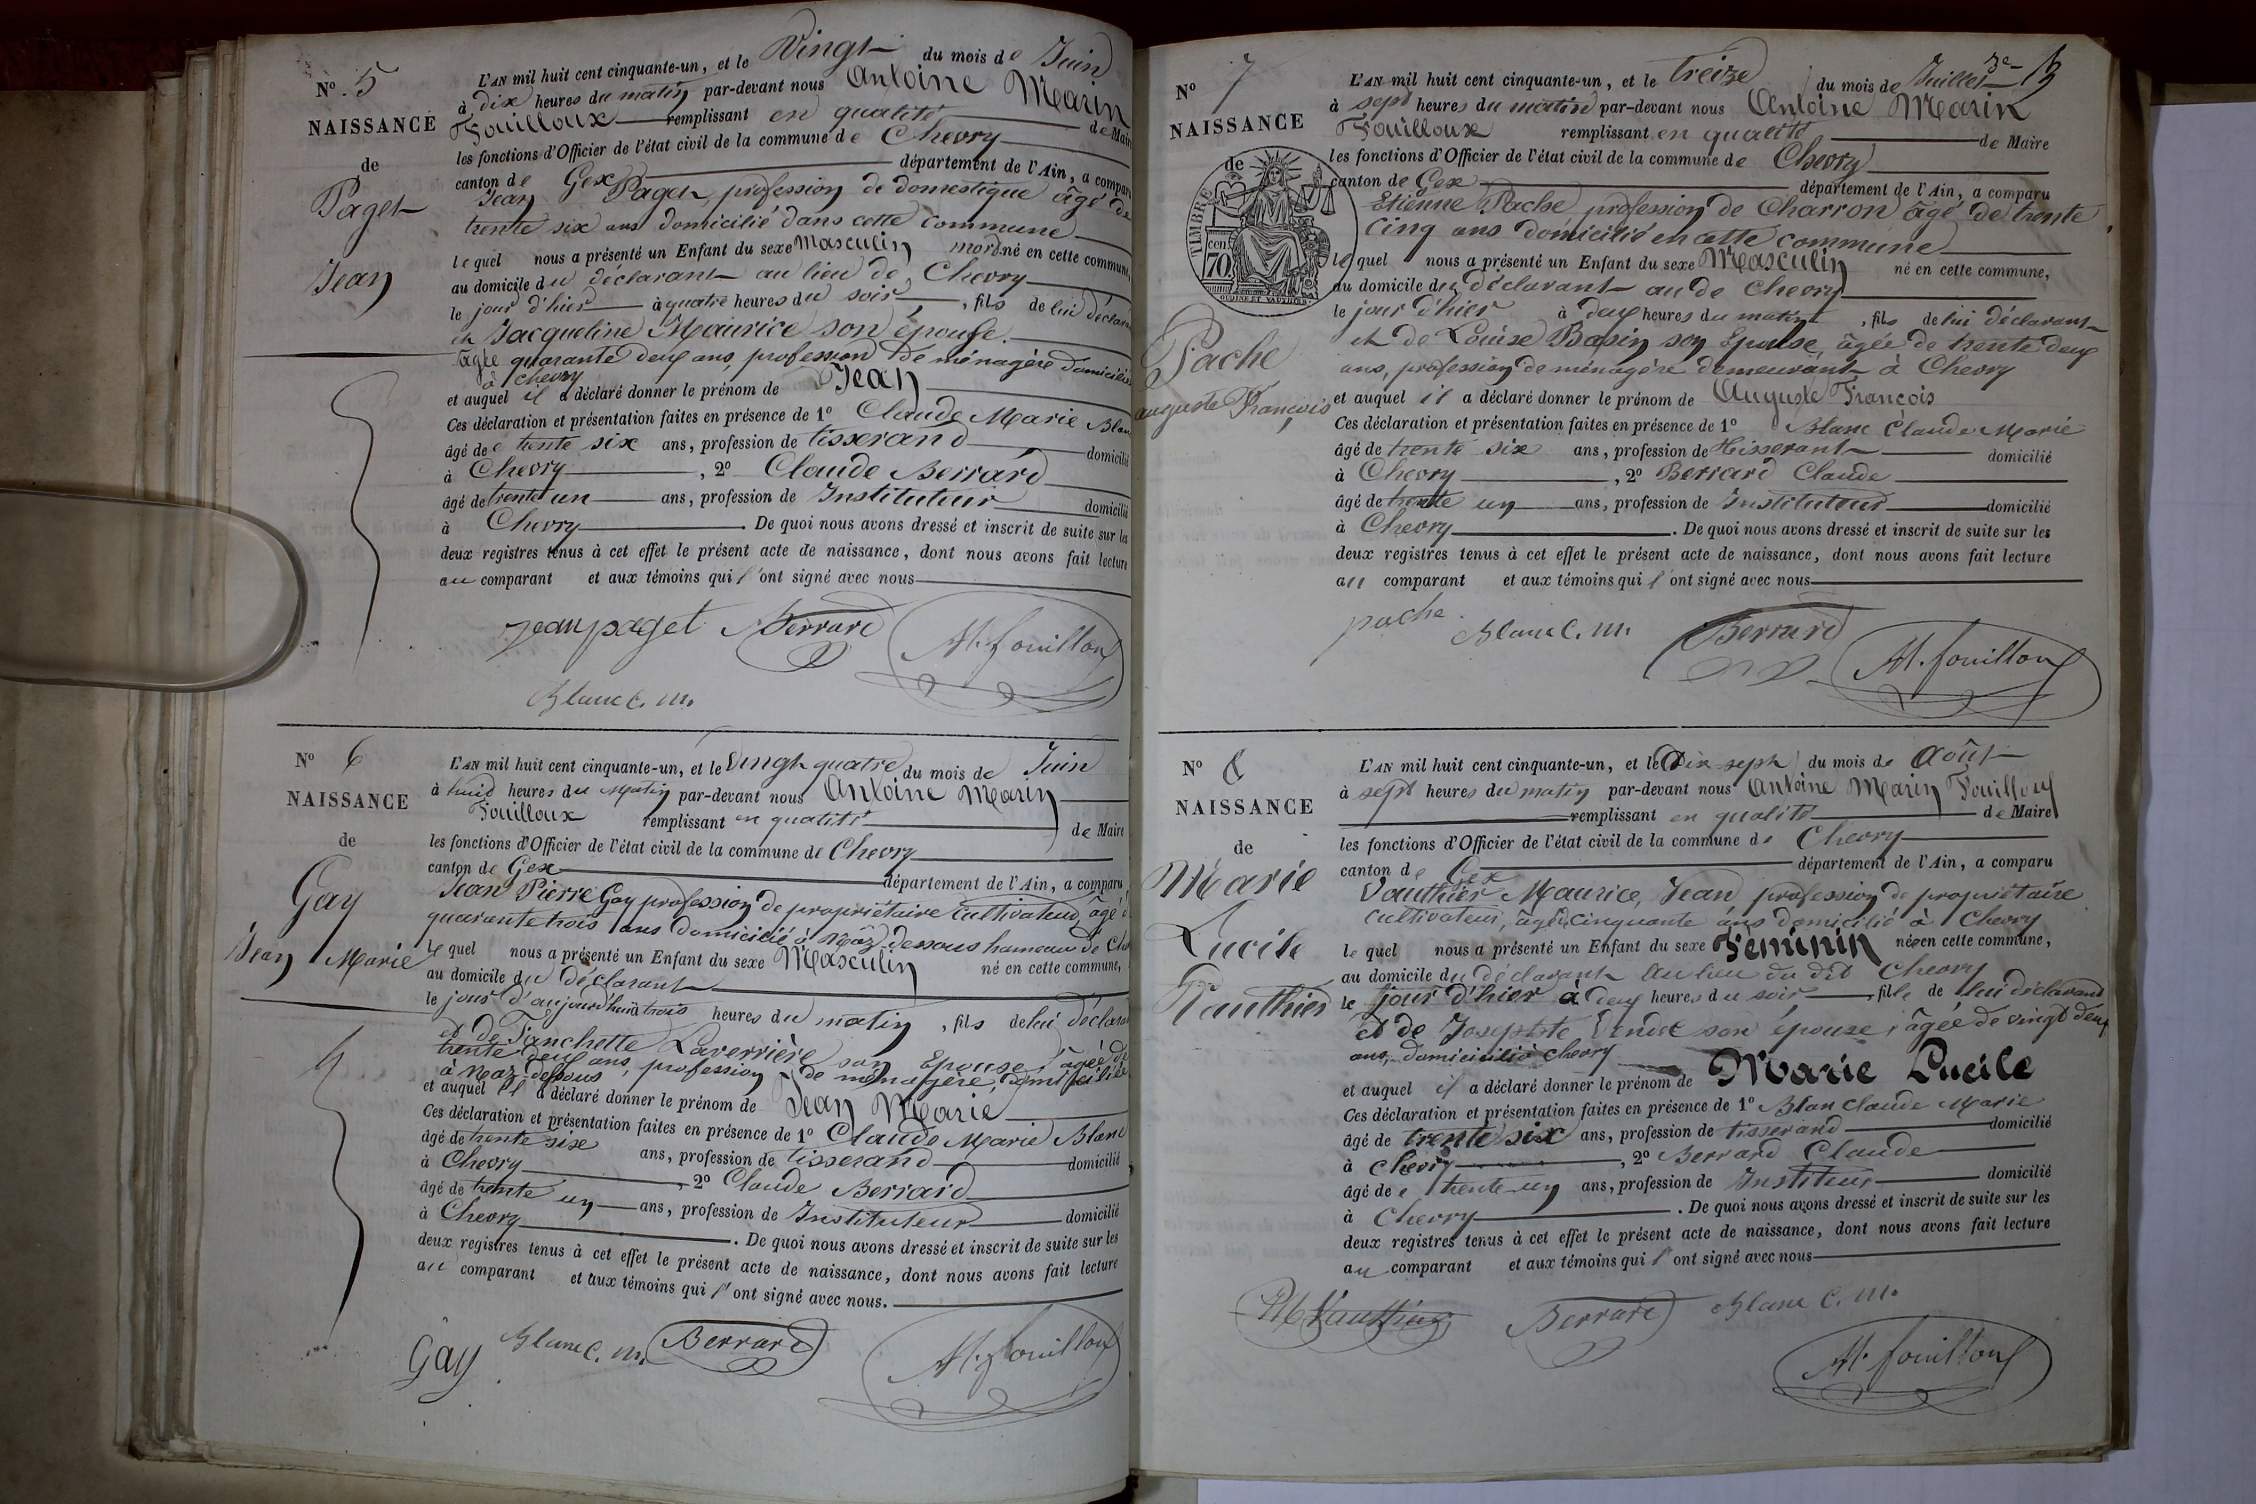 N° 5
NAISSANCE
de
Paget
Jean
L'AN mil huit cent cinquante-un, et le Vingt du mois de Juin
à dix heures du matin par-devant nous Antoine Marin
Fouilloux remplissant en qualité de Maire
les fonctions d'Officier de l'état civil de la commune de Chevry
canton de Gex département de l'Ain, a comparu
Jean Paget, profession de domestique âgé de
trente six ans domicilié dans cette commune
lequel nous a présenté un Enfant du sexe Masculin mort né en cette commune,
au domicile du déclarant au lieu de Chevry
le jour d'hier à quatre heures du soir, fils de lui déclarant
et Jacqueline Maurice son épouse.
âgée quarante deux ans, profession de ménagère domiciliée
à Chevry
et auquel il a déclaré donner le prénom de Jean
Ces déclaration et présentation faites en présence de 1° Claude Marie Blanc
âgé de trente six ans, profession de tisserand domicilié
à Chevry, 2° Claude Berrard
âgé de trente un ans, profession de Instituteur domicilié
à Chevry. De quoi nous avons dressé et inscrit de suite sur les
deux registres tenus à cet effet le présent acte de naissance, dont nous avons fait lecture
au comparant et aux témoins qui l'ont signé avec nous
Jean paget Berrard M. fouilloux
Blanc C. M.
N° 6
NAISSANCE
de
Gay
Jean Marie
L'AN mil huit cent cinquante-un, et le Vingt quatre du mois de Juin
à huit heures du matin par-devant nous Antoine Marin
Fouilloux remplissant en qualité de Maire
les fonctions d'Officier de l'état civil de la commune de Chevry
canton de Gex département de l'Ain, a comparu
Jean Pierre Gay profession de propriétaire cultivateur, âgé
quarante trois ans domicilié à Naz-dessous hameau de
Le quel nous a présenté un Enfant du sexe Masculin né en cette commune,
au domicile du déclarant
le jour d'aujourd'hui à trois heures du matin, fils de lui déclarant
et de Fanchette Laverrière son Epouse, âgée de
trente deux ans, profession de ménagère, domiciliée
à Naz-dessous
et auquel il a déclaré donner le prénom de Jean Marie
Ces déclaration et présentation faites en présence de 1° Claude Marie Blanc
âgé de trente six ans, profession de tisserand domicilié
à Chevry, 2° Claude Berrard
âgé de trente un ans, profession de Instituteur domicilié
à Chevry. De quoi nous avons dressé et inscrit de suite sur les
deux registres tenus à cet effet le présent acte de naissance, dont nous avons fait lecture
au comparant et aux témoins qui l'ont signé avec nous.
Gay Blanc C. M. Berrard M. fouilloux
N° 7
NAISSANCE
de
TIMBRE
cen 70
OUDINÉ ET VAUTHIER
Pache
auguste François
L'AN mil huit cent cinquante-un, et le treize du mois de Juillet
à sept heures du matin par-devant nous Antoine Marin
Fouilloux remplissant en qualité de Maire
les fonctions d'Officier de l'état civil de la commune de Chevry
canton de Gex département de l'Ain, a comparu
Etienne Pache profession de Charron âgé de trente
Cinq ans domicilié en cette commune
le quel nous a présenté un Enfant du sexe Masculin né en cette commune,
au domicile du déclarant au de Chevry
le jour d'hier à deux heures du matin, fils de lui déclarant
et de Louise Basin son Epouse, âgée de trente deux
ans, profession de ménagère demeurant à Chevry
et auquel il a déclaré donner le prénom de Auguste François
Ces déclaration et présentation faites en présence de 1° Blanc Claude Marie
âgé de trente six ans, profession de tisserant domicilié
à Chevry, 2° Berrard Claude
âgé de trente un ans, profession de Instituteur domicilié
à Chevry. De quoi nous avons dressé et inscrit de suite sur les
deux registres tenus à cet effet le présent acte de naissance, dont nous avons fait lecture
au comparant et aux témoins qui l'ont signé avec nous
pache Blanc C. M. Berrard M. fouilloux
N° 8
NAISSANCE
de
Marie
Lucile
Vauthier
L'AN mil huit cent cinquante-un, et le Dix sept du mois de Août
à sept heures du matin par-devant nous Antoine Marin Fouilloux
remplissant en qualité de Maire
les fonctions d'Officier de l'état civil de la commune de Chevry
canton de Gex département de l'Ain, a comparu
Vauthier Maurice, Jean profession de propriétaire
cultivateur, âgé cinquante ans domicilié à Chevry
le quel nous a présenté un Enfant du sexe Féminin née en cette commune,
au domicile du déclarant au lieu du dit Chevry
le jour d'hier à deux heures du soir, fille de lui déclarant
et de Josephte son épouse, âgée de vingt deux
ans, domicilié à Chevry
et auquel il a déclaré donner le prénom de Marie Lucile
Ces déclaration et présentation faites en présence de 1° Blan Claude Marie
âgé de trente six ans, profession de tisserand domicilié
à Chevry, 2° Berrard Claude
âgé de trente un ans, profession de Instituteur domicilié
à Chevry. De quoi nous avons dressé et inscrit de suite sur les
deux registres tenus à cet effet le présent acte de naissance, dont nous avons fait lecture
au comparant et aux témoins qui l'ont signé avec nous
Vauthier Berrard Blanc C. M.
M. fouilloux